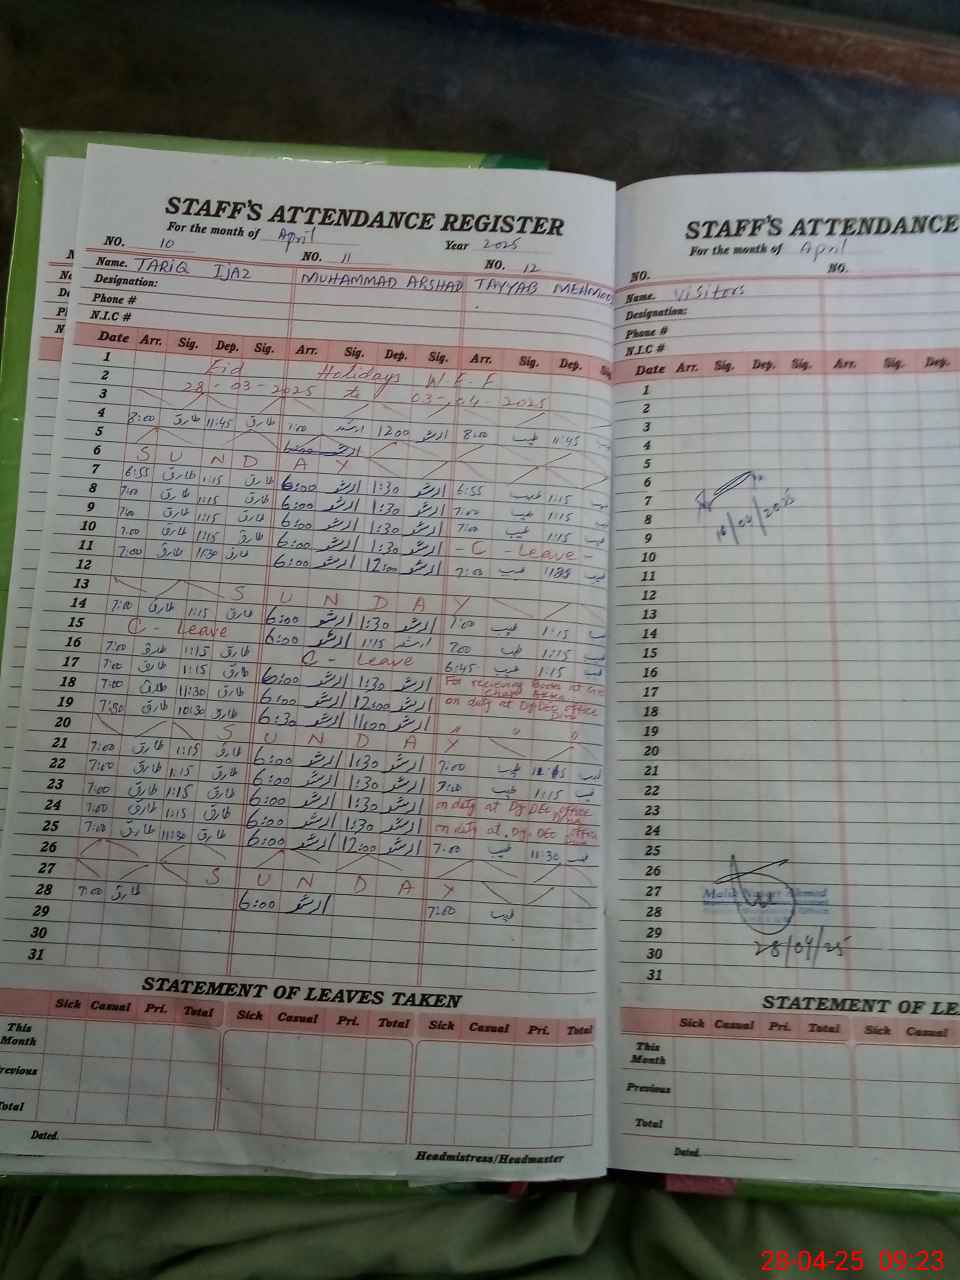 STAFF'S ATTENDANCE REGISTER
For the month of April Year 2025
NO. 10 NO. 11 NO. 12
Name. TARIQ IJAZ MUHAMMAD ARSHAD TAYYAB MEHMOO
Designation:
Phone #
N.I.C #
Date Arr. Sig. Dep. Sig. Arr. Sig. Dep. Sig. Arr. Sig. Dep. Sig
1
2 Eid Holidays W.E.F
3 28-03-2025 to 03-04-2025
4 8:00 طارق 11:45 طارق 1200 ارشد 8:00 طیب 11:45
5
6 S U N D A Y
7 6:55 طارق 1:15 طارق 6:00 ارشد 1:30 ارشد 6:55 طیب 1:15
8 7:00 طارق 1:15 طارق 6:00 ارشد 1:30 ارشد 7:00 طیب 1:15
9 7:00 طارق 1:15 طارق 6:00 ارشد 1:30 ارشد 7:00 طیب 1:15
10 7:00 طارق 1:15 طارق 6:00 ارشد 1:30 ارشد - C - Leave -
11 7:00 طارق 11:30 طارق 6:00 ارشد 12:00 ارشد 7:00 طیب
12
13 S U N D A Y
14 7:00 طارق 1:15 طارق 6:00 ارشد 1:30 ارشد 7:00 طیب 1:15
15 C - Leave 6:00 ارشد 1:15 ارشد 7:00 طیب 1:15 طیب
16 7:00 طارق 1:15 طارق C - Leave 6:45 طیب 1:15 طیب
17 7:00 طارق 1:15 طارق 6:00 ارشد 1:30 ارشد For recieving Books at
18 7:00 طارق 11:30 طارق 6:00 ارشد 12:00 ارشد on duty at Dy DEO office
19 7:30 طارق 10:30 طارق 6:30 ارشد 11:00 ارشد " " "
20 S U N D A Y
21 7:00 طارق 1:15 طارق 6:00 ارشد 1:30 ارشد 7:00 طیب طیب
22 7:00 طارق 1:15 طارق 6:00 ارشد 1:30 ارشد 7:00 طیب 1:15 طیب
23 7:00 طارق 1:15 طارق 6:00 ارشد 1:30 ارشد on duty at Dy DEO office
24 7:00 طارق 1:15 طارق 6:00 ارشد 1:30 ارشد on duty at Dy. DEO office
25 7:00 طارق 11:30 طارق 6:00 ارشد 12:00 ارشد 7:00 طیب 11:30 طیب
26
27 S U N D A Y
28 7:00 طارق 6:00 ارشد 7:00 طیب
29
30
31
STATEMENT OF LEAVES TAKEN
Sick Casual Pri. Total Sick Casual Pri. Total Sick Casual Pri. Total
This Month
revious
otal
Dated.
Headmistress/Headmaster
STAFF'S ATTENDANCE
For the month of April
NO. NO.
Name. Visitors
Designation:
Phone #
N.I.C #
Date Arr. Sig. Dep. Sig. Arr. Sig. Dep.
1
2
3
4
5
6
7
8
9
10
11
12
13
14
15
16
17
18
19
20
21
22
23
24
25
26
27
28
29 28/04/25
30
31
STATEMENT OF LE
Sick Casual Pri. Total Sick Casual
This Month
Previous
Total
Dated.
28-04-25 09:23